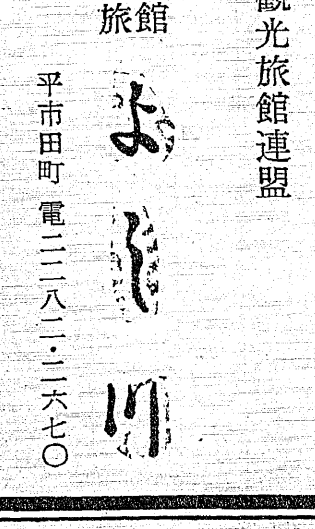 観光旅館連盟
旅館
よし川
平市田町 電二二八二・二六七〇